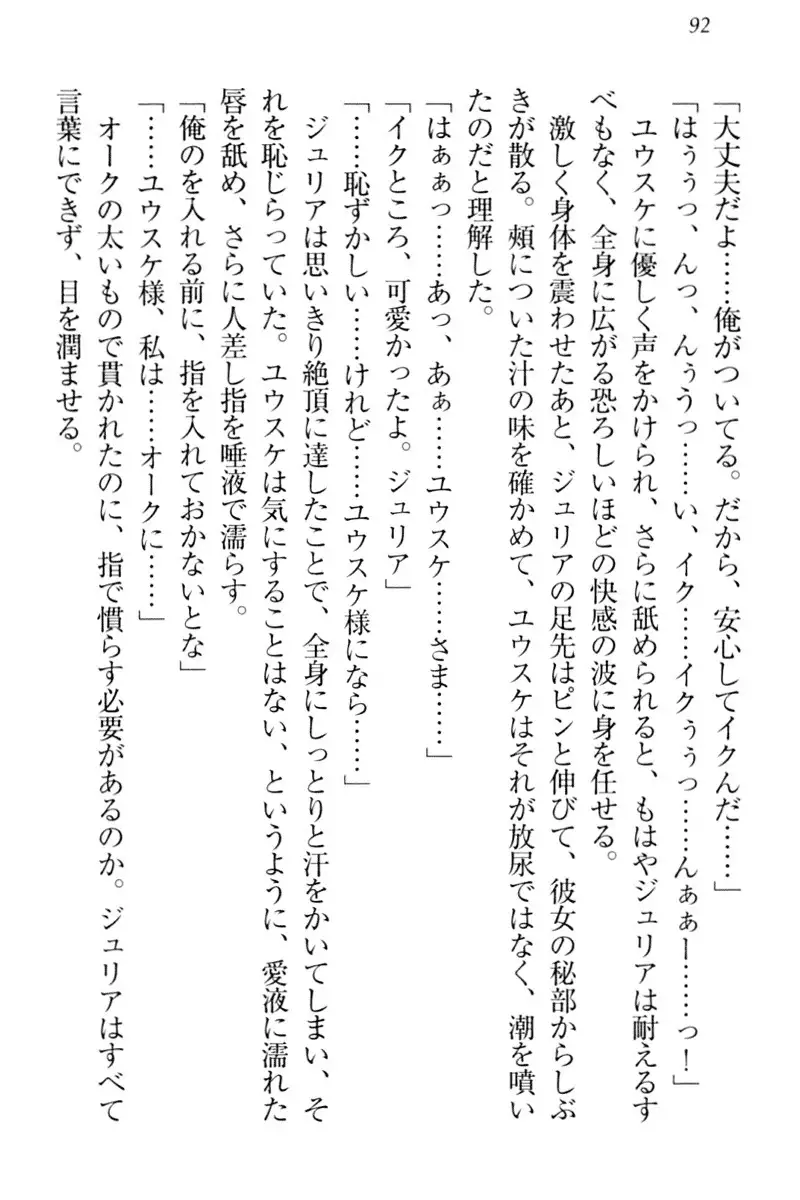 92
「大丈夫だよ……俺がついてる。だから、安心してイクんだ……」
「はぅぅっ、んっ、んぅうっ……い、イク……イクぅぅっ……んぁぁー……っ！」
ユウスケに優しく声をかけられ、さらに舐められると、もはやジュリアは耐えるす
べもなく、全身に広がる恐ろしいほどの快感の波に身を任せる。
激しく身体を震わせたあと、ジュリアの足先はピンと伸びて、彼女の秘部からしぶ
きが散る。頬についた汁の味を確かめて、ユウスケはそれが放尿ではなく、潮を噴い
たのだと理解した。
「はぁぁっ……あっ、あぁ……ユウスケ……さま……」
「イクところ、可愛かったよ。ジュリア」
「……恥ずかしい……けれど……ユウスケ様になら……」
ジュリアは思いきり絶頂に達したことで、全身にしっとりと汗をかいてしまい、そ
れを恥じらっていた。ユウスケは気にすることはない、というように、愛液に濡れた
唇を舐め、さらに人差し指を唾液で濡らす。
「俺のを入れる前に、指を入れておかないとな」
「……ユウスケ様、私は……オークに……」
オークの太いもので貫かれたのに、指で慣らす必要があるのか。ジュリアはすべて
言葉にできず、目を潤ませる。